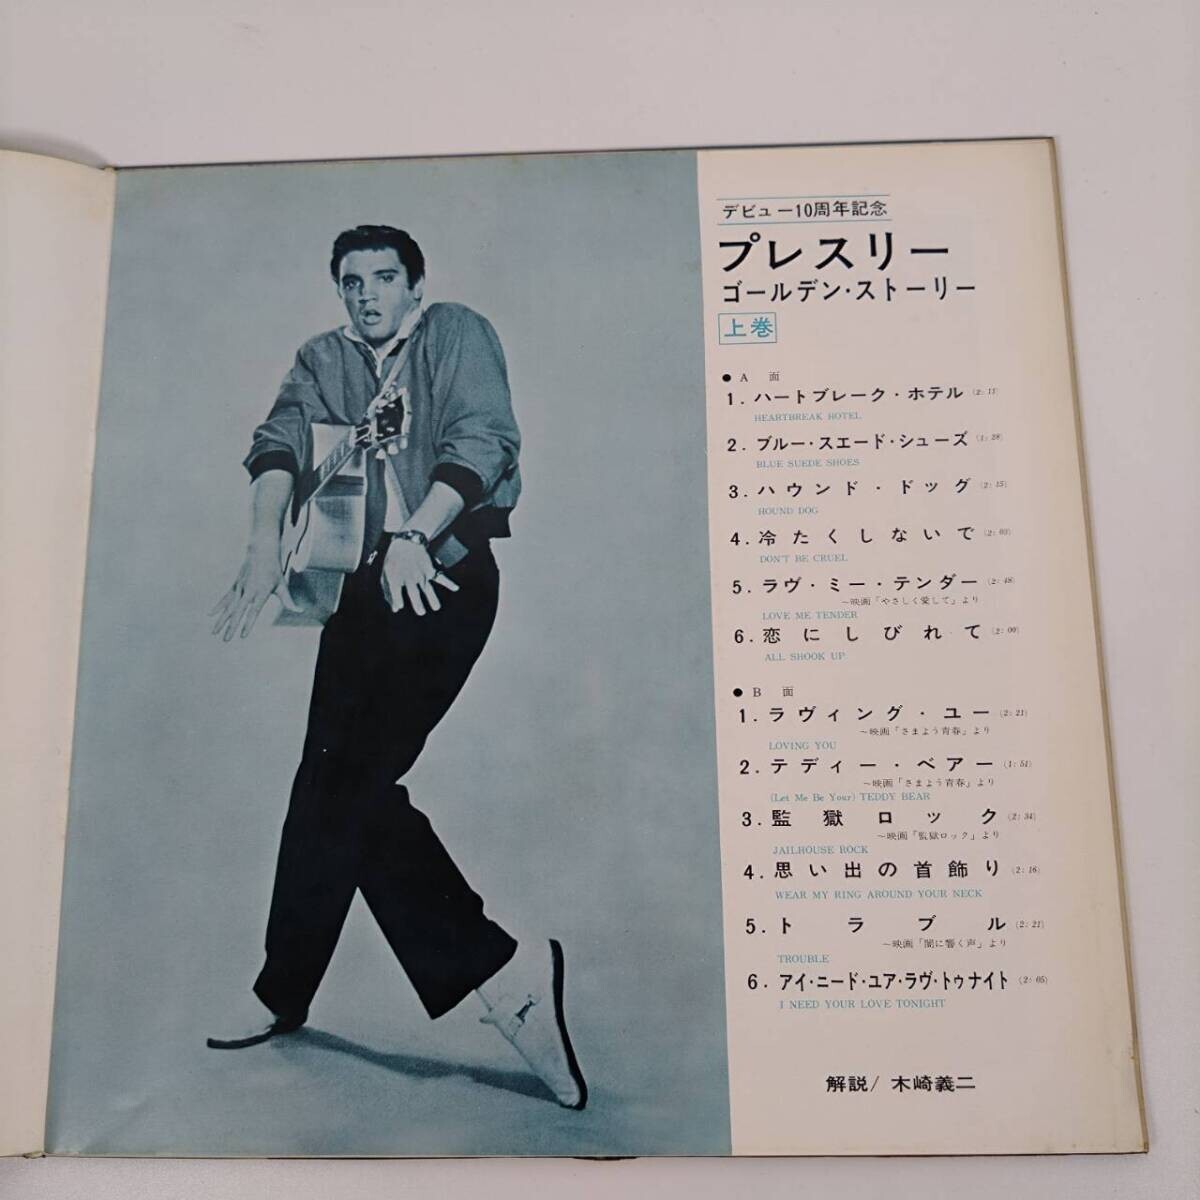 デビュー10周年記念
プレスリー
ゴールデン・ストーリー
上巻
● A 面
1. ハートブレーク・ホテル (2:11)
HEARTBREAK HOTEL
2. ブルー・スエード・シューズ (1:28)
BLUE SUEDE SHOES
3. ハウンド・ドッグ (2:15)
HOUND DOG
4. 冷たくしないで (2:03)
DON'T BE CRUEL
5. ラヴ・ミー・テンダー (2:48)
～映画「やさしく愛して」より
LOVE ME TENDER
6. 恋にしびれて (2:00)
ALL SHOOK UP
● B 面
1. ラヴィング・ユー (2:21)
～映画「さまよう青春」より
LOVING YOU
2. テディー・ベアー (1:51)
～映画「さまよう青春」より
(Let Me Be Your) TEDDY BEAR
3. 監獄ロック (2:34)
～映画「監獄ロック」より
JAILHOUSE ROCK
4. 思い出の首飾り (2:16)
WEAR MY RING AROUND YOUR NECK
5. トラブル (2:21)
～映画「闇に響く声」より
TROUBLE
6. アイ・ニード・ユア・ラヴ・トゥナイト (2:05)
I NEED YOUR LOVE TONIGHT
解説/ 木崎義二